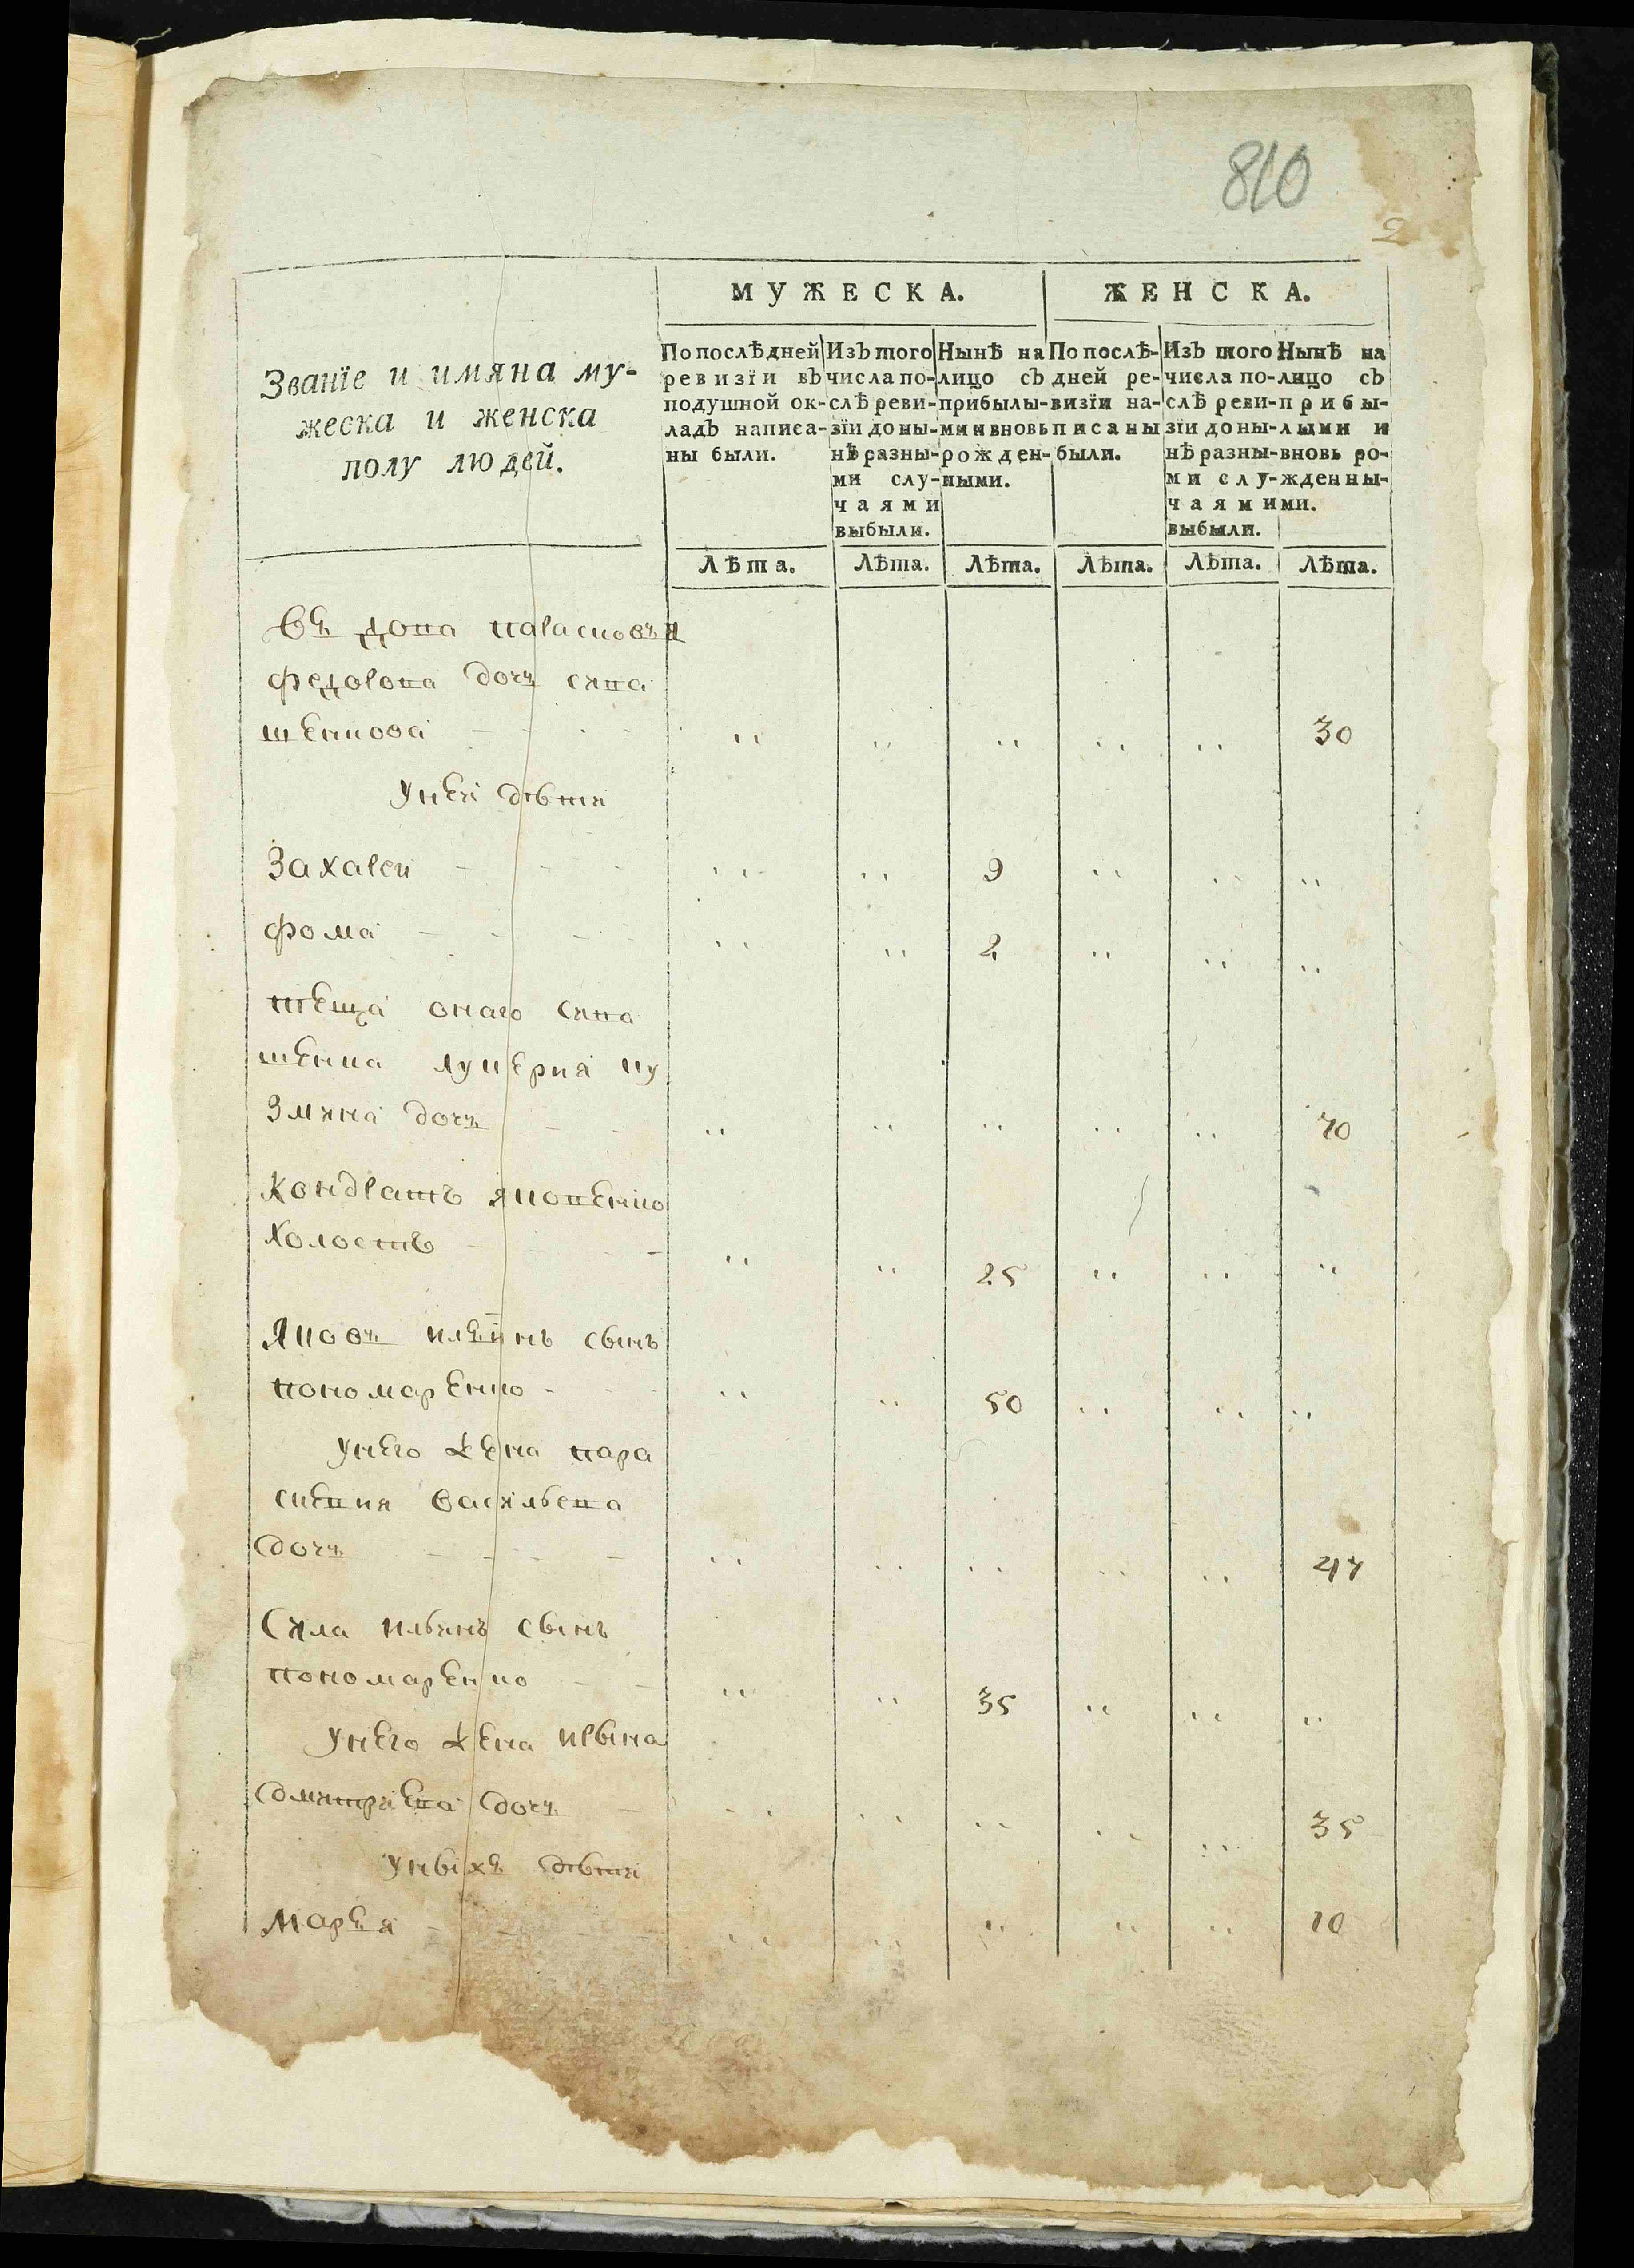 810
2
МУЖЕСКА. ЖЕНСКА.
Званїе и имяна му-
жеска и женска
полу людей.
По послѣдней
ревизїи въ
подушной ок-
ладъ написа-
ны были.
Изъ того
числа по-
слѣ реви-
зїи до ны-
нѣ разны-
ми слу-
чаями
выбыли.
Нынѣ на
лицо съ
прибылы-
ми и вновь
рожден-
ными.
По послѣ-
дней ре-
визїи на-
писаны
были.
Изъ того
числа по-
слѣ реви-
зїи до ны-
нѣ разны-
ми слу-
чаями
выбыли.
Нынѣ на
лицо съ
прибы-
лыми и
вновь ро-
жденны-
ми.
Лѣта. Лѣта. Лѣта. Лѣта. Лѣта. Лѣта.
федорова дочъ сипа
шенкова 30
унеи дѣти
Захареи 9
фома 2
теща онаго сипа
шенка лукеря ку
змина дочъ 70
Кондратъ яковенко
холостъ 25
Яковъ илїинъ сынъ
пономаренко 50
унего жена пара
скевия васильева
дочъ 47
Сила ильинъ сынъ
пономаренко 35
унего жена ирына
дмитриева дочъ 35
уныхъ дѣти
Марея 10